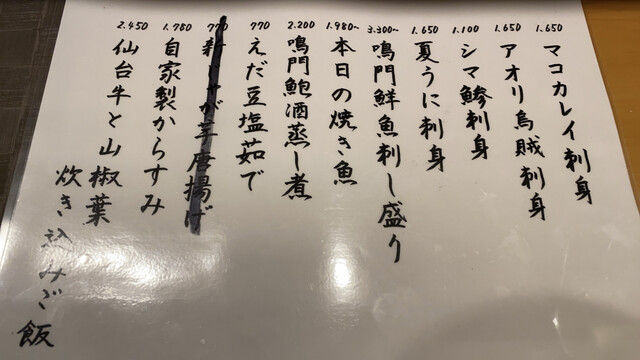 1.650
マコカレイ刺身
1.650
アオリ烏賊刺身
1.100
シマ鯵刺身
1.650
夏うに刺身
3.300〜
鳴門鮮魚刺し盛り
1.980〜
本日の焼き魚
2.200
鳴門鮑酒蒸し煮
770
えだ豆塩茹で
770
新じゃが芋唐揚げ
1.780
自家製からすみ
2.450
仙台牛と山椒葉
炊き込みご飯